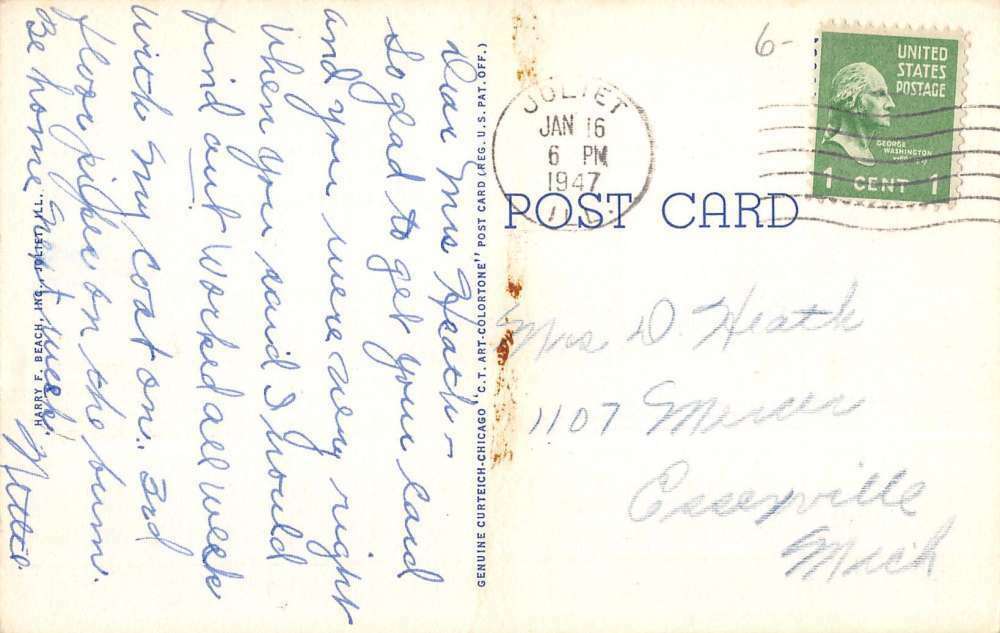 Dear Mrs Heath—
So glad to get your card
and you were very right
when you said I would
find out. Worked all week
with my coat on. 3rd
floor pipes on the bum.
Be home next week.
HARRY F. BEACH, INC., JOLIET, ILL.
GENUINE CURTEICH-CHICAGO "C.T. ART-COLORTONE" POST CARD (REG. U.S. PAT. OFF.)
JOLIET
JAN 16
6 PM
1947
ILL.
6-
UNITED
STATES
POSTAGE
GEORGE
WASHINGTON
1 CENT 1
POST CARD
Mrs D. Heath
1107 Mercer
Essexville
Mich